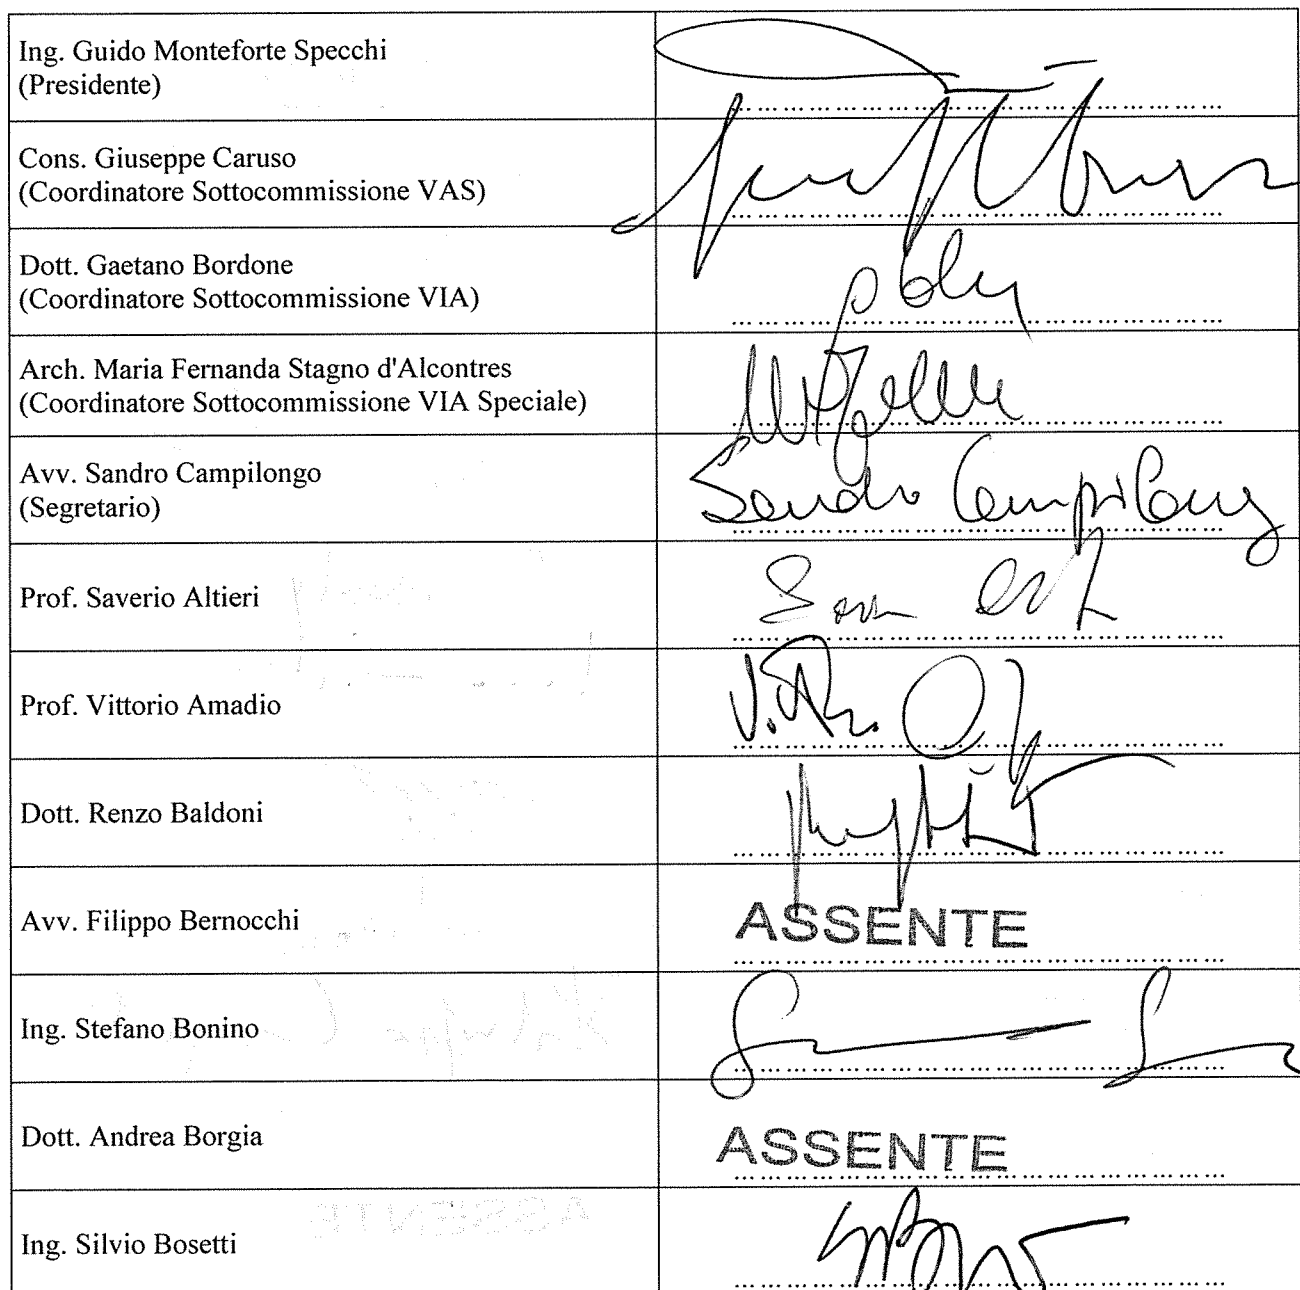 Ing. Guido Monteforte Specchi
(Presidente)
Cons. Giuseppe Caruso
(Coordinatore Sottocommissione VAS)
Dott. Gaetano Bordone
(Coordinatore Sottocommissione VIA)
Arch. Maria Fernanda Stagno d'Alcontres
(Coordinatore Sottocommissione VIA Speciale)
Avv. Sandro Campilongo
(Segretario)
Sandro Campilong
Prof. Saverio Altieri
Prof. Vittorio Amadio
Dott. Renzo Baldoni
Avv. Filippo Bernocchi
ASSENTE
Ing. Stefano Bonino
Dott. Andrea Borgia
ASSENTE
Ing. Silvio Bosetti